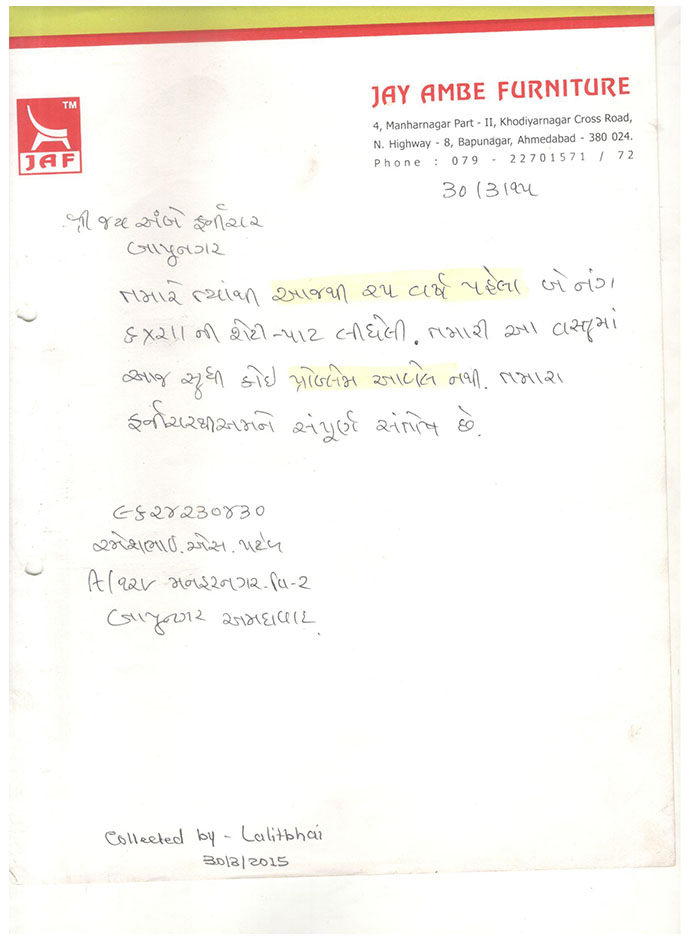 JAY AMBE FURNITURE
TM
JAF
4, Manharnagar Part - II, Khodiyarnagar Cross Road,
N. Highway - 8, Bapunagar, Ahmedabad - 380 024.
Phone : 079 - 22701571 / 72
30/3/૧૫
શ્રી જય અંબે ફર્નીચર
બાપુનગર
તમારે ત્યાંથી આજથી ૨૫ વર્ષ પહેલા બે નંગ
૬×૨ાા ની શેટી-પાટ લીધેલી. તમારી આ વસ્તુમાં
આજ સુધી કોઇ પ્રોબ્લેમ આવેલ નથી. તમારા
ફર્નીચરથી અમને સંપૂર્ણ સંતોષ છે.
૯૬૨૪૨૩૦૪૩૦
રમેશભાઈ. એસ. પટેલ
A/૧૨૪ મનહરનગર-વિ-૨
બાપુનગર અમદાવાદ.
Collected by - Lalitbhai
30/3/2015